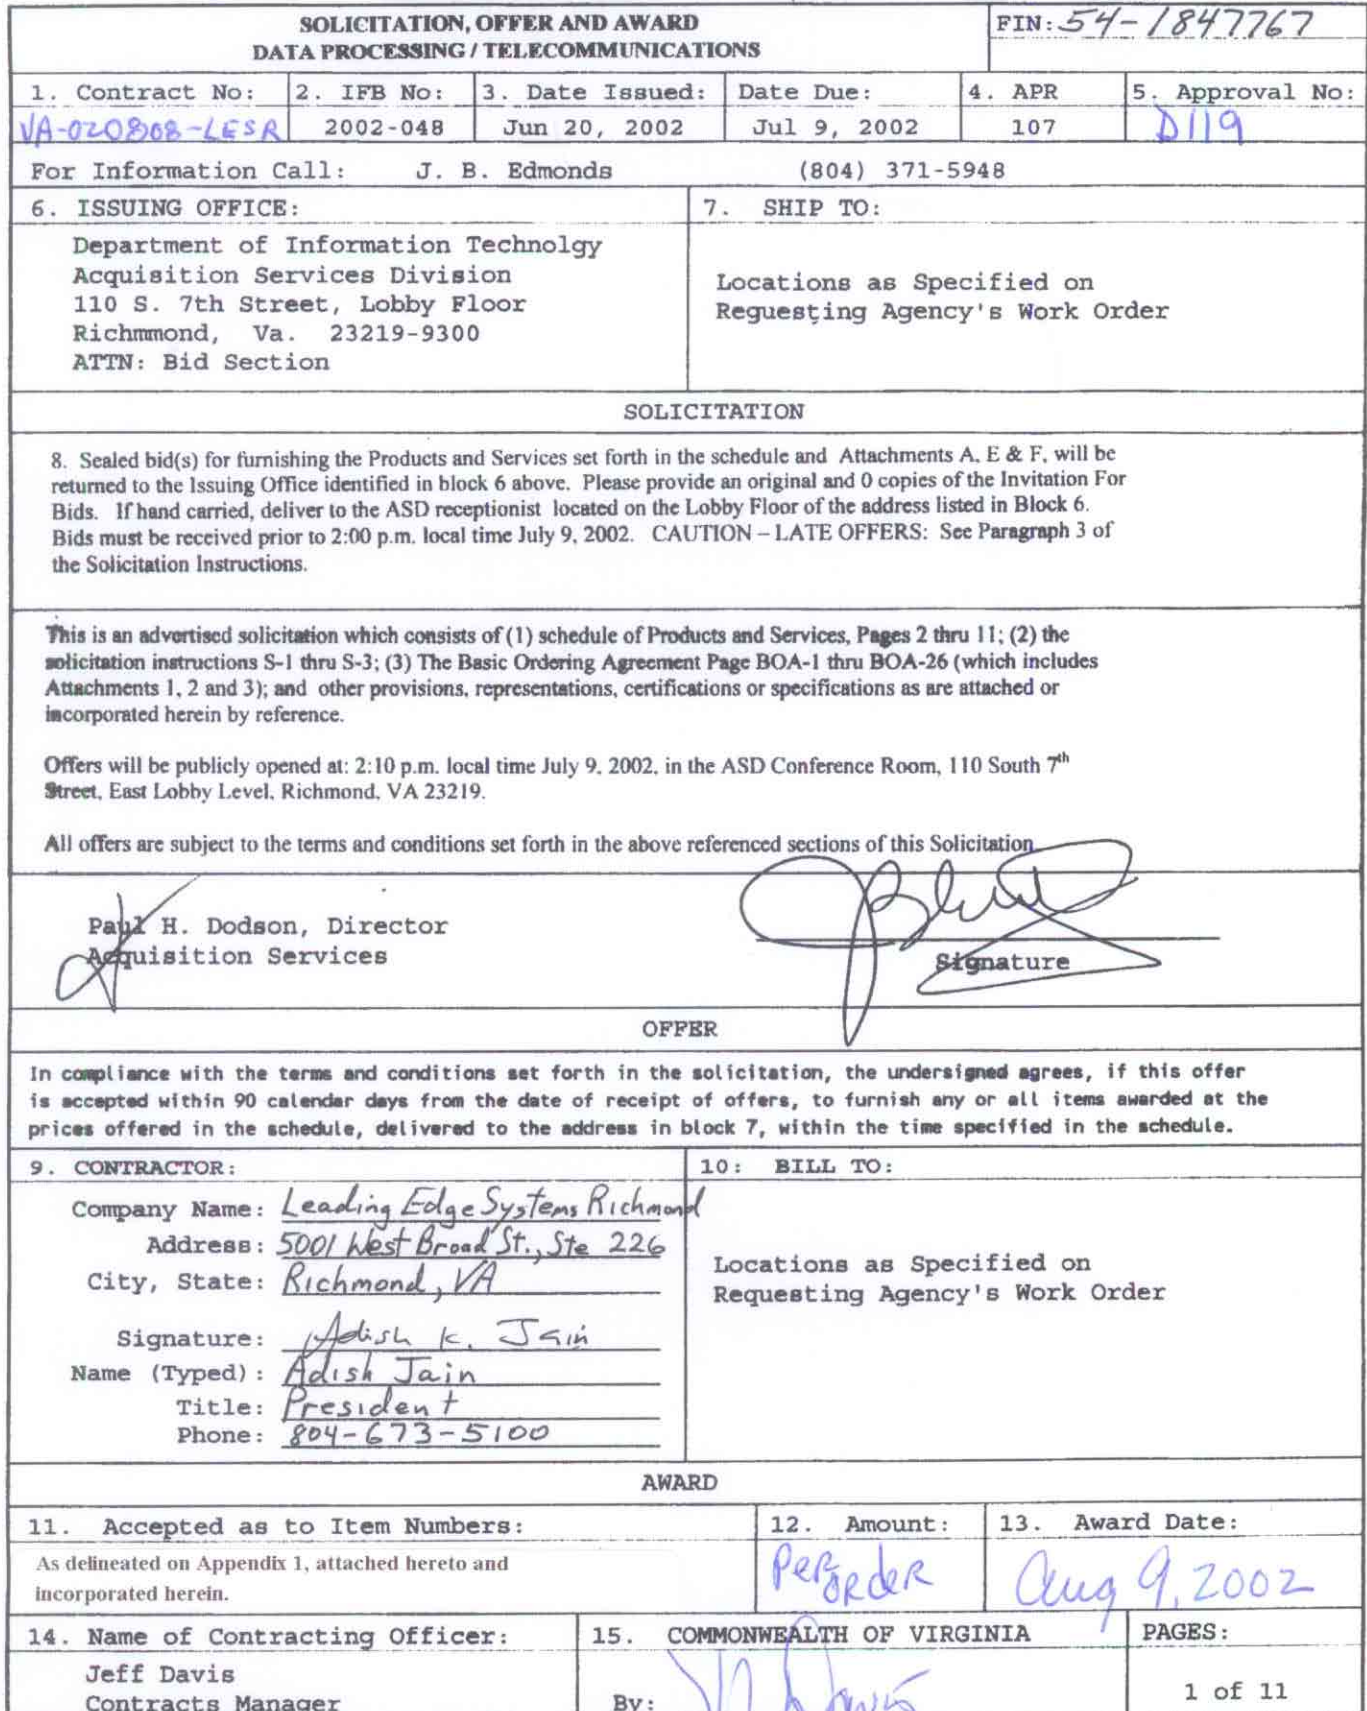 SOLICITATION, OFFER AND AWARD
DATA PROCESSING / TELECOMMUNICATIONS
FIN: 54-1847767
1. Contract No: 2. IFB No: 3. Date Issued: Date Due: 4. APR 5. Approval No:
VA-020808-LESR 2002-048 Jun 20, 2002 Jul 9, 2002 107 D119
For Information Call: J. B. Edmonds (804) 371-5948
6. ISSUING OFFICE:
Department of Information Technolgy
Acquisition Services Division
110 S. 7th Street, Lobby Floor
Richmmond, Va. 23219-9300
ATTN: Bid Section
7. SHIP TO:
Locations as Specified on
Requesting Agency's Work Order
SOLICITATION
8. Sealed bid(s) for furnishing the Products and Services set forth in the schedule and Attachments A, E & F, will be
returned to the Issuing Office identified in block 6 above. Please provide an original and 0 copies of the Invitation For
Bids. If hand carried, deliver to the ASD receptionist located on the Lobby Floor of the address listed in Block 6.
Bids must be received prior to 2:00 p.m. local time July 9, 2002. CAUTION – LATE OFFERS: See Paragraph 3 of
the Solicitation Instructions.
This is an advertised solicitation which consists of (1) schedule of Products and Services, Pages 2 thru 11; (2) the
solicitation instructions S-1 thru S-3; (3) The Basic Ordering Agreement Page BOA-1 thru BOA-26 (which includes
Attachments 1, 2 and 3); and other provisions, representations, certifications or specifications as are attached or
incorporated herein by reference.
Offers will be publicly opened at: 2:10 p.m. local time July 9, 2002, in the ASD Conference Room, 110 South 7th
Street, East Lobby Level, Richmond, VA 23219.
All offers are subject to the terms and conditions set forth in the above referenced sections of this Solicitation
Paul H. Dodson, Director
Acquisition Services
Signature
OFFER
In compliance with the terms and conditions set forth in the solicitation, the undersigned agrees, if this offer
is accepted within 90 calendar days from the date of receipt of offers, to furnish any or all items awarded at the
prices offered in the schedule, delivered to the address in block 7, within the time specified in the schedule.
9. CONTRACTOR:
Company Name: Leading Edge Systems Richmond
Address: 5001 West Broad St., Ste 226
City, State: Richmond, VA
Signature: Adish K. Jain
Name (Typed): Adish Jain
Title: President
Phone: 804-673-5100
10: BILL TO:
Locations as Specified on
Requesting Agency's Work Order
AWARD
11. Accepted as to Item Numbers:
As delineated on Appendix 1, attached hereto and
incorporated herein.
12. Amount:
Per
Order
13. Award Date:
Aug 9, 2002
14. Name of Contracting Officer:
Jeff Davis
Contracts Manager
15. COMMONWEALTH OF VIRGINIA
By:
PAGES:
1 of 11